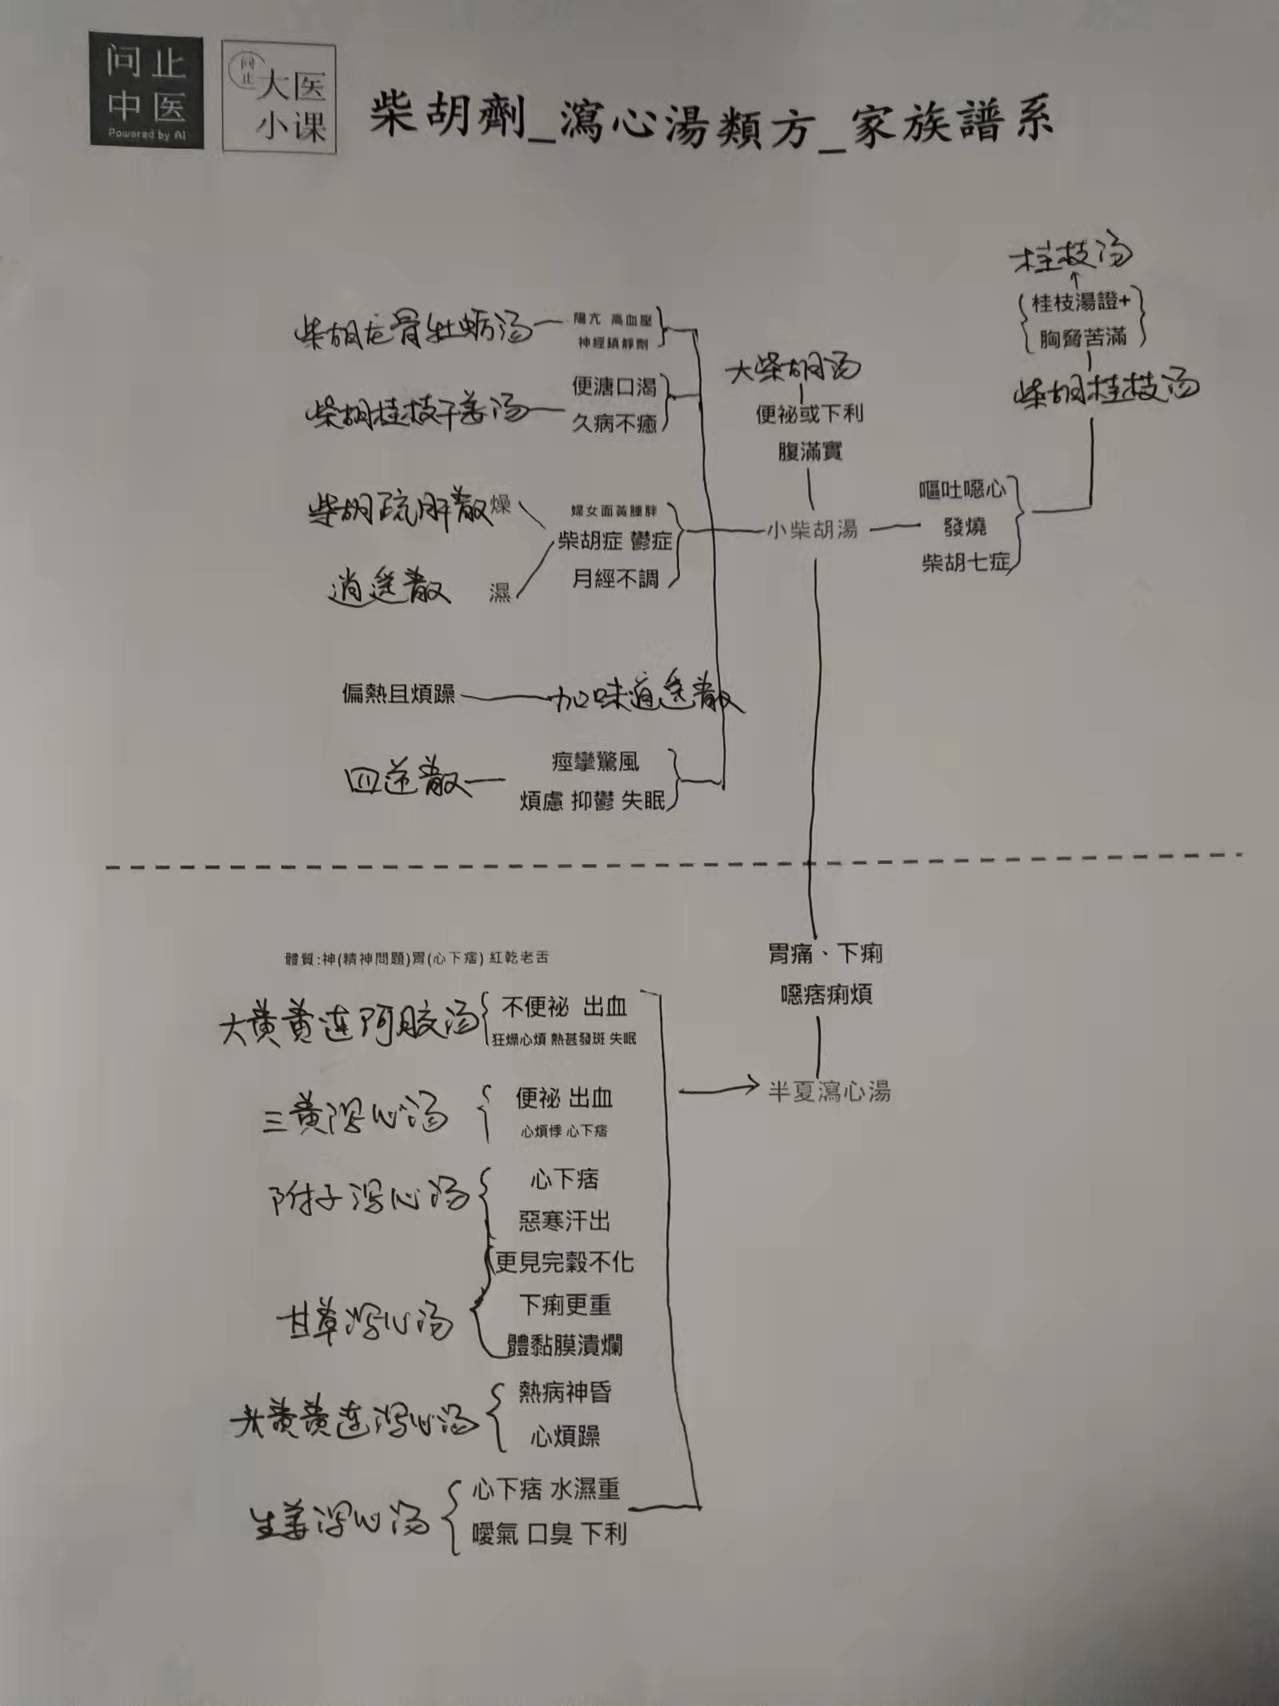 问止
中医
Powered by AI
问止
大医
小课
柴胡劑_瀉心湯類方_家族譜系
桂枝汤
桂枝湯證+
胸脅苦滿
柴胡桂枝汤
柴胡龙骨牡蛎汤
陽亢 高血壓
神經鎮靜劑
大柴胡汤
便祕或下利
腹滿實
柴胡桂枝干姜汤
便溏口渴
久病不癒
嘔吐噁心
發燒
柴胡七症
小柴胡湯
柴胡疏肝散 燥
逍遥散 濕
婦女面黃腫胖
柴胡症 鬱症
月經不調
偏熱且煩躁
加味逍遥散
四逆散
痙攣驚風
煩慮 抑鬱 失眠
胃痛、下痢
噁痞痢煩
半夏瀉心湯
體質:神(精神問題)胃(心下痞) 紅乾老舌
大黄黄连阿胶汤
不便祕 出血
狂燥心煩 熱甚發斑 失眠
三黄泻心汤
便祕 出血
心煩悸 心下痞
附子泻心汤
心下痞
惡寒汗出
更見完穀不化
甘草泻心汤
下痢更重
體黏膜潰爛
大黄黄连泻心汤
熱病神昏
心煩躁
生姜泻心汤
心下痞 水濕重
噯氣 口臭 下利